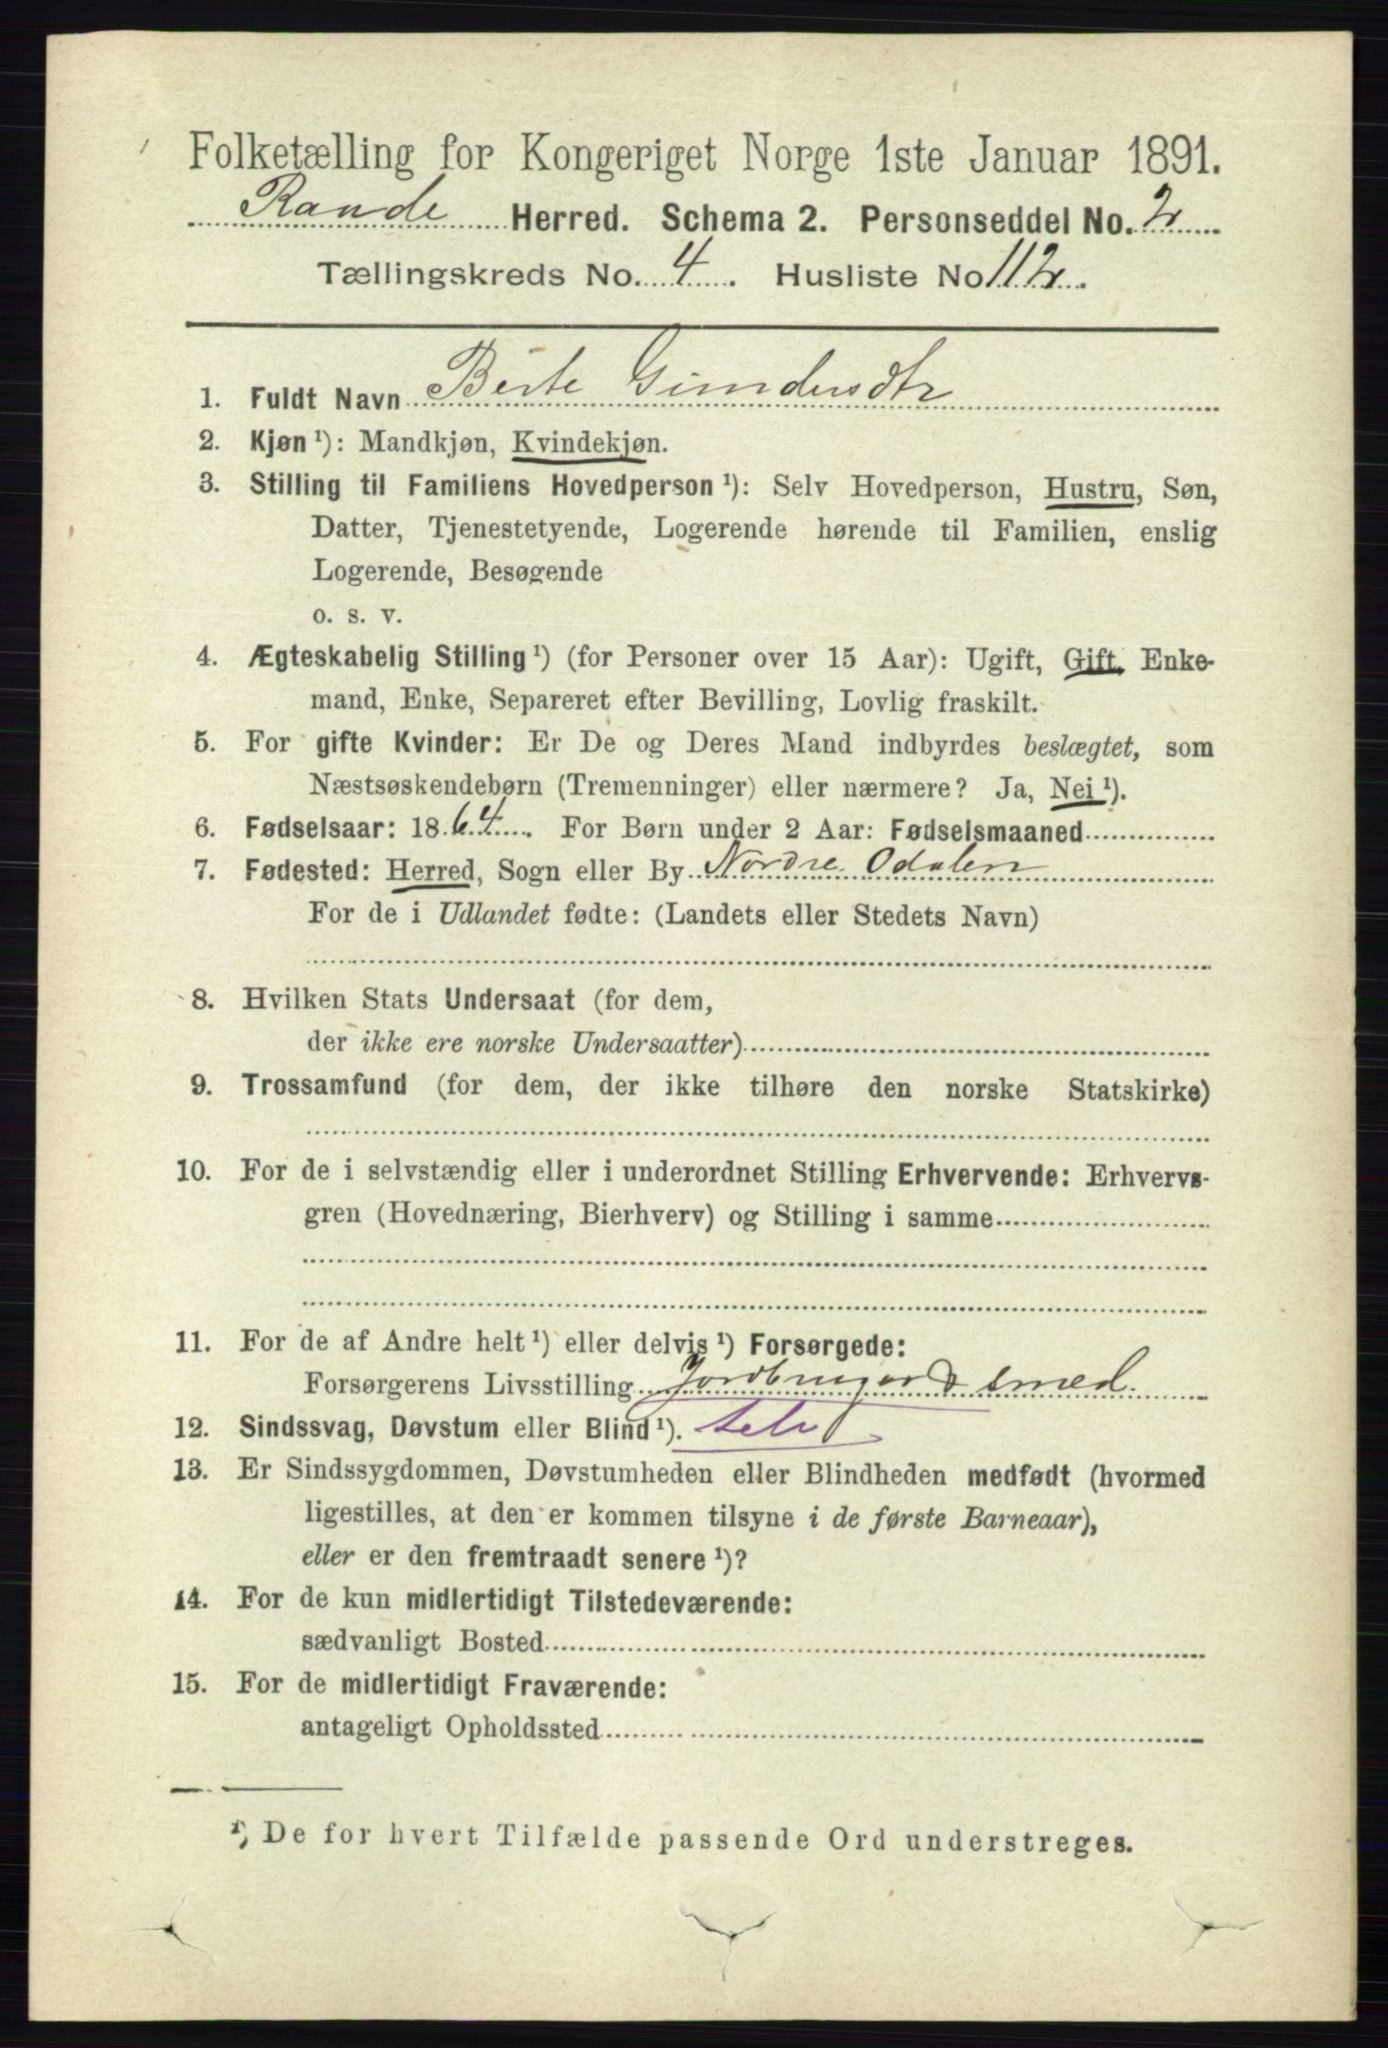 Folketælling for Kongeriget Norge 1ste Januar 1891.
Raade Herred. Schema 2. Personseddel No. 2
Tællingskreds No. 4. Husliste No 112.
1. Fuldt Navn Berte Gundersdtr
2. Kjøn ¹): Mandkjøn, Kvindekjøn.
3. Stilling til Familiens Hovedperson ¹): Selv Hovedperson, Hustru, Søn,
Datter, Tjenestetyende, Logerende hørende til Familien, enslig
Logerende, Besøgende
o. s. v.
4. Ægteskabelig Stilling ¹) (for Personer over 15 Aar): Ugift, Gift, Enke-
mand, Enke, Separeret efter Bevilling, Lovlig fraskilt.
5. For gifte Kvinder: Er De og Deres Mand indbyrdes beslægtet, som
Næstsøskendebørn (Tremenninger) eller nærmere? Ja, Nei ¹).
6. Fødselsaar: 1864. For Børn under 2 Aar: Fødselsmaaned
7. Fødested: Herred, Sogn eller By Nordre Odalen
For de i Udlandet fødte: (Landets eller Stedets Navn)
8. Hvilken Stats Undersaat (for dem,
der ikke ere norske Undersaatter)
9. Trossamfund (for dem, der ikke tilhøre den norske Statskirke)
10. For de i selvstændig eller i underordnet Stilling Erhvervende: Erhvervs-
gren (Hovednæring, Bierhverv) og Stilling i samme
11. For de af Andre helt ¹) eller delvis ¹) Forsørgede:
Forsørgerens Livsstilling Jordbruger & smed
12. Sindssvag, Døvstum eller Blind ¹). selv
13. Er Sindssygdommen, Døvstumheden eller Blindheden medfødt (hvormed
ligestilles, at den er kommen tilsyne i de første Barneaar),
eller er den fremtraadt senere ¹)?
14. For de kun midlertidigt Tilstedeværende:
sædvanligt Bosted
15. For de midlertidigt Fraværende:
antageligt Opholdssted
¹) De for hvert Tilfælde passende Ord understreges.